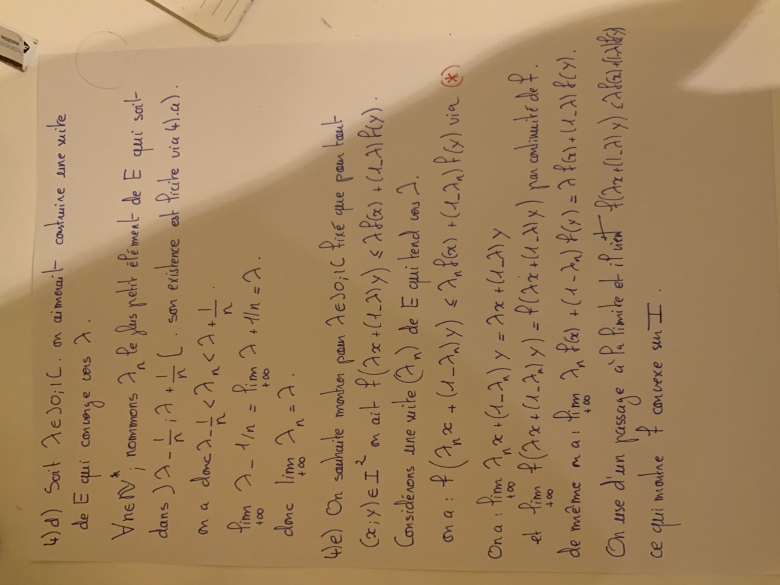 4)d) Soit λ∈]0;1[. on aimerait construire une suite
de E qui converge vers λ.
∀n∈ℕ*; nommons λn le plus petit élément de E qui soit
dans ]λ - 1/n ; λ + 1/n [. son existence est licite via 4).a).
on a donc λ - 1/n < λn < λ + 1/n
lim +∞ λ - 1/n = lim +∞ λ + 1/n = λ.
donc lim +∞ λn = λ.
4)e) On souhaite montrer pour λ∈]0;1[ fixé que pour tout
(x;y)∈I² on ait f(λx + (1-λ)y) ≤ λf(x) + (1-λ)f(y).
Considérons une suite (λn) de E qui tend vers λ.
on a : f(λn x + (1-λn)y) ≤ λn f(x) + (1-λn)f(y) via (*)
On a : lim +∞ λn x + (1-λn)y = λx + (1-λ)y
et lim +∞ f(λn x + (1-λn)y) = f(λx + (1-λ)y) par continuité de f.
de même on a : lim +∞ λn f(x) + (1-λn)f(y) = λf(x) + (1-λ)f(y).
On use d'un passage à la limite et il vient f(λx+(1-λ)y) ≤ λf(x)+(1-λ)f(y)
ce qui montre f convexe sur I.